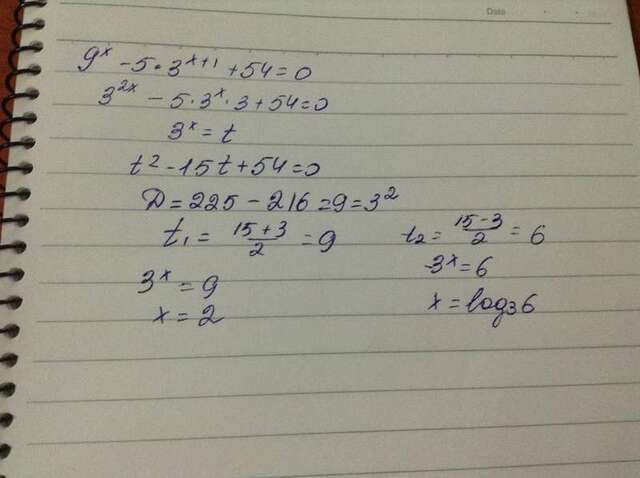 Date
9ˣ - 5·3ˣ⁺¹ + 54 = 0
3²ˣ - 5·3ˣ·3 + 54 = 0
3ˣ = t
t² - 15t + 54 = 0
D = 225 - 216 = 9 = 3²
t₁ = (15+3)/2 = 9 t₂ = (15-3)/2 = 6
3ˣ = 9 3ˣ = 6
x = 2 x = log₃6